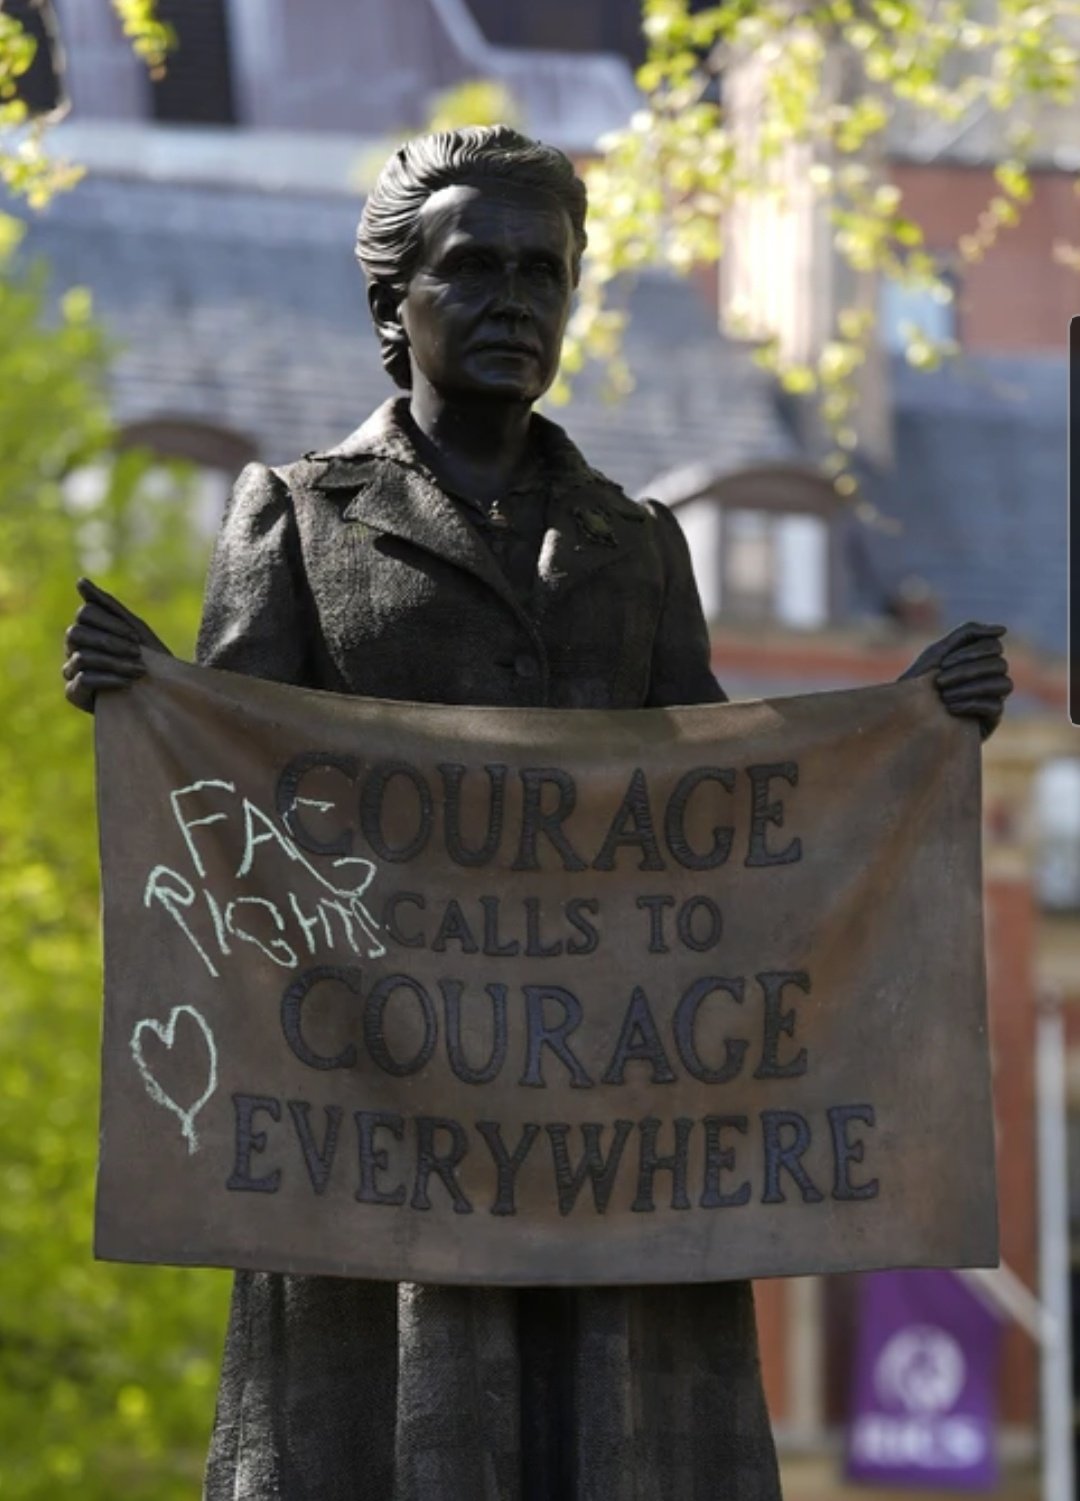 COURAGE
CALLS TO
COURAGE
EVERYWHERE
FAG
RIGHTS
RICS